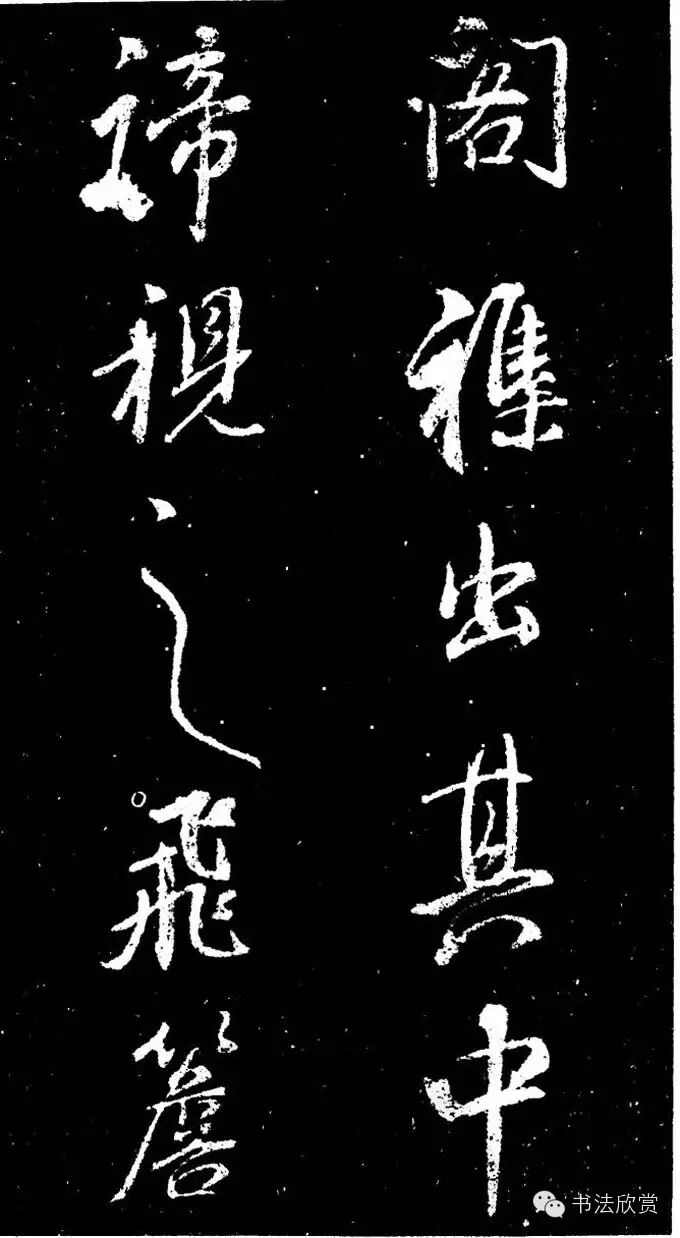 閣襍出其中
諦視之飛簷
书法欣赏